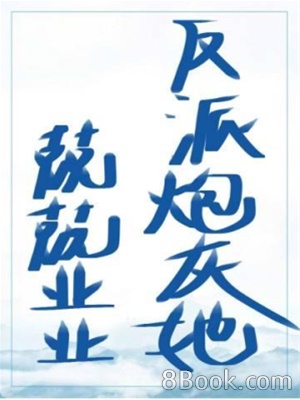 反派炮灰她
兢兢业业
8Book.com